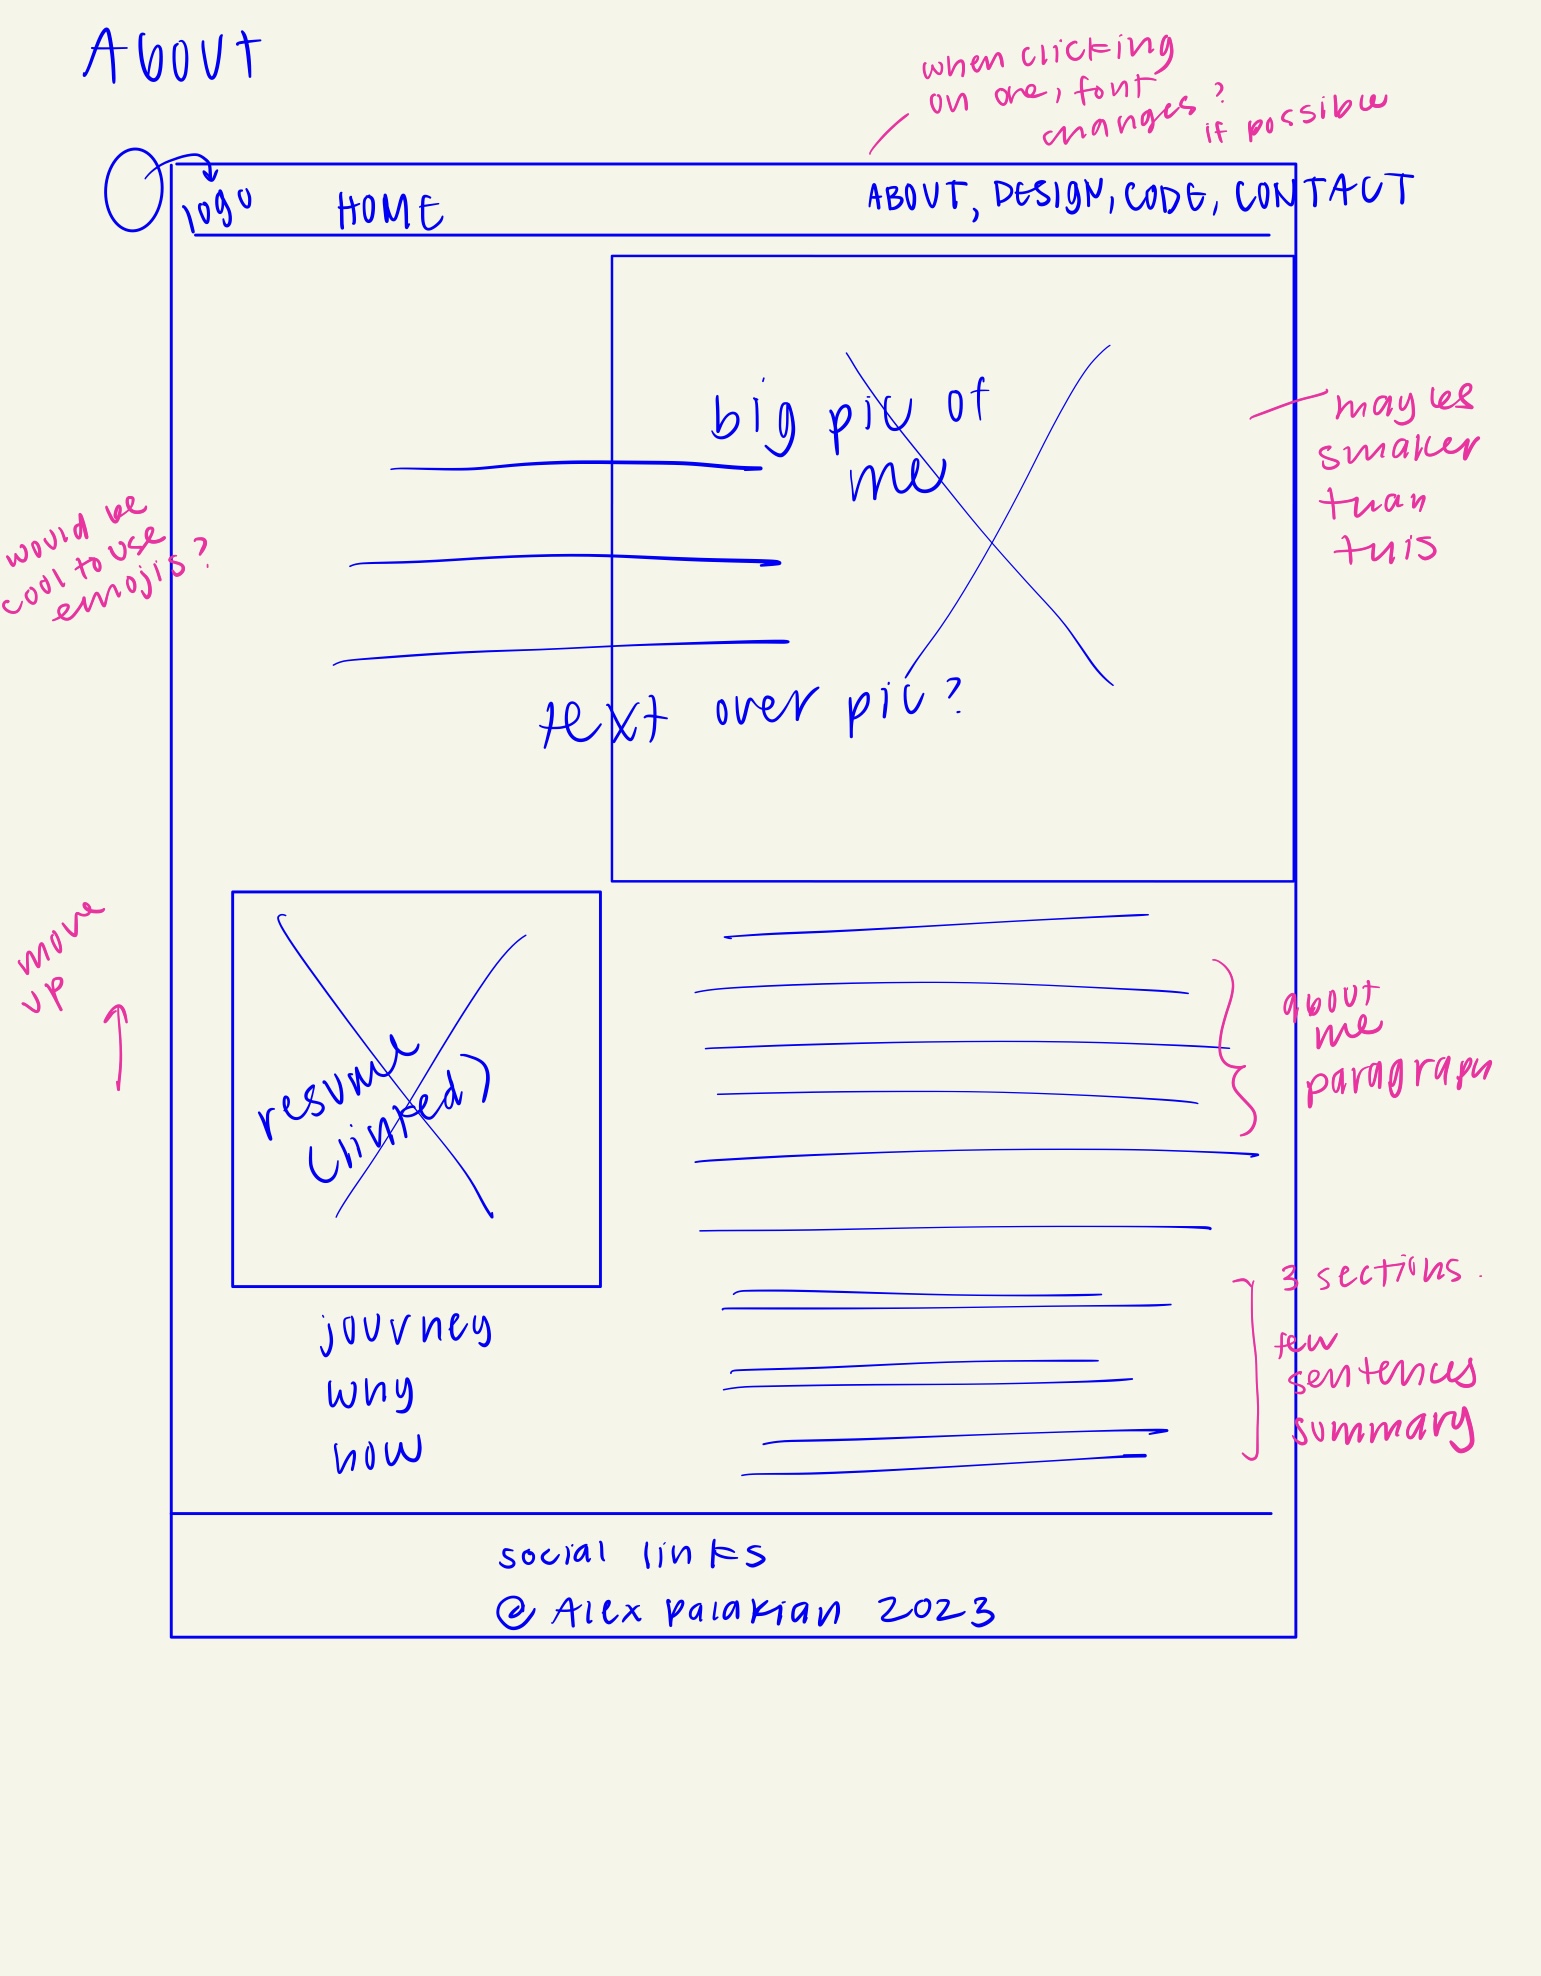 ABOUT
when clicking
on one, font
changes?
if possible
logo
HOME
ABOUT, DESIGN, CODE, CONTACT
big pic of
me
smaller
than
this
would be
cool to use
emojis?
text over pic?
move
up
resume
(linked)
about
me
paragraph
3 sections.
few
sentences
summary
journey
why
how
social links
@ Alex Palakian 2023